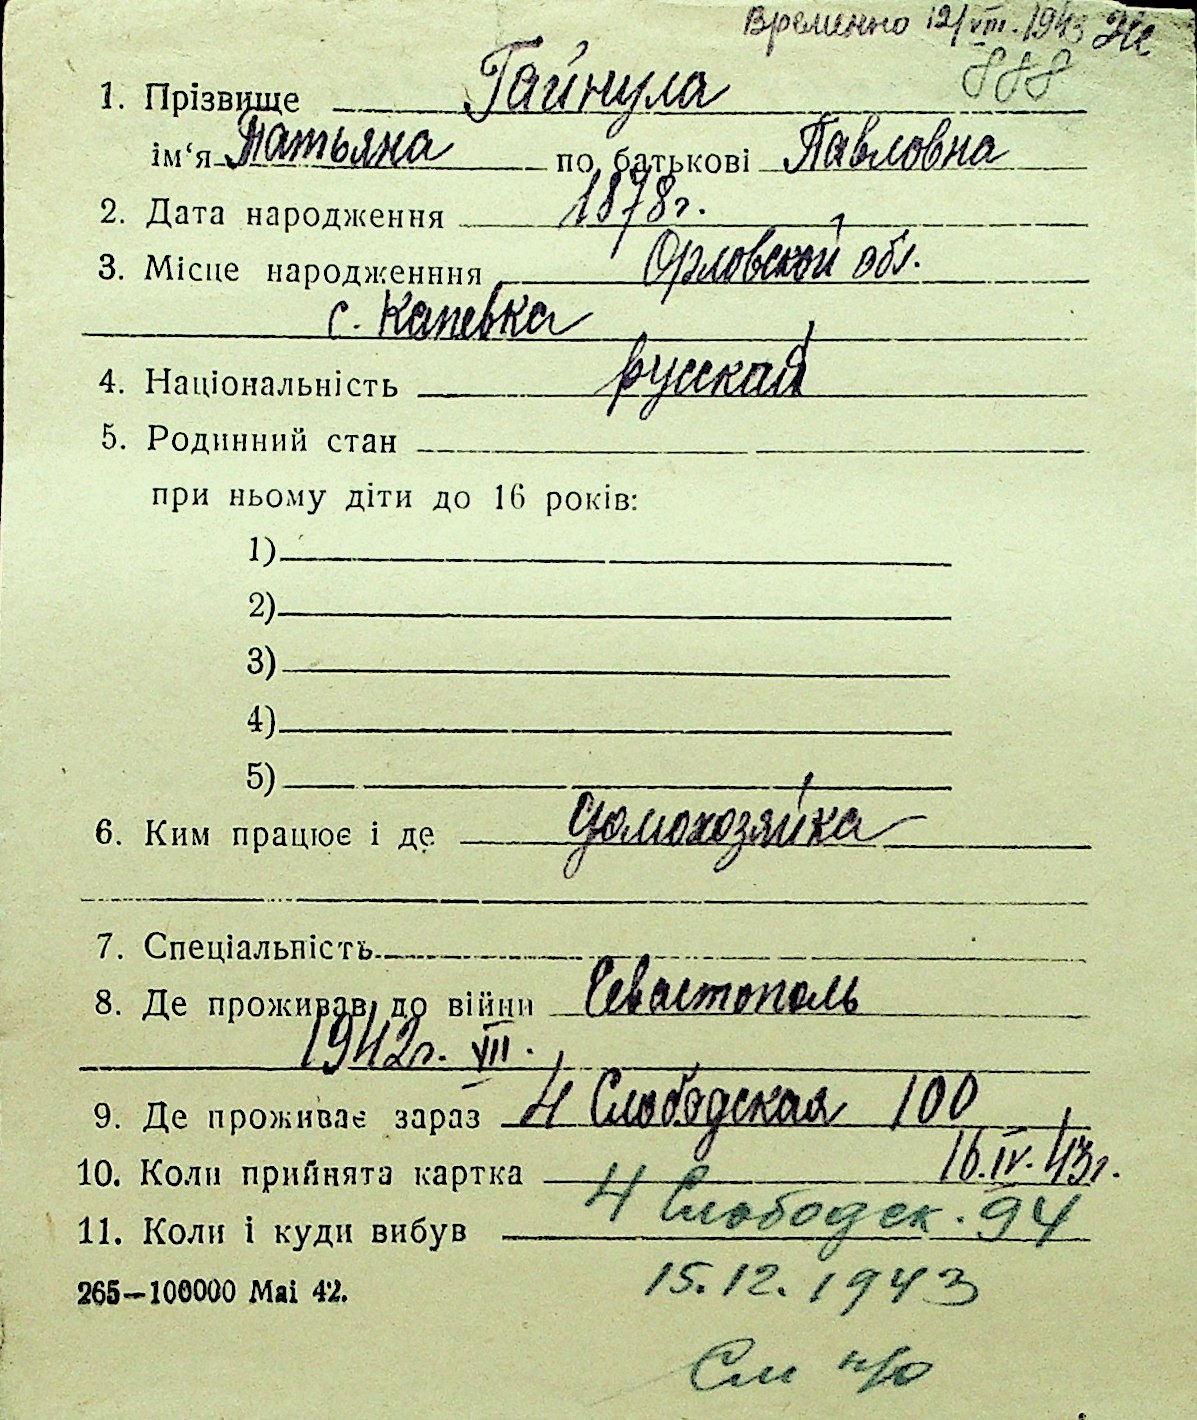 Временно 12/VIII.1943
888
1. Прізвище Гайнула
ім‘я Татьяна по батькові Павловна
2. Дата народження 1878г.
3. Місце народженння Орловской обл.
с. Капевка
4. Національність русская
5. Родинний стан
при ньому діти до 16 років:
1)
2)
3)
4)
5)
6. Ким працює і де домохозяйка
7. Спеціальність
8. Де проживав до війни Севастополь
1942г. VII.
9. Де проживає зараз 4 Слободская 100
10. Коли прийнята картка 16.IV.43г.
11. Коли і куди вибув 4 Слободск. 94
265—100000 Mai 42. 15.12.1943
См н/о